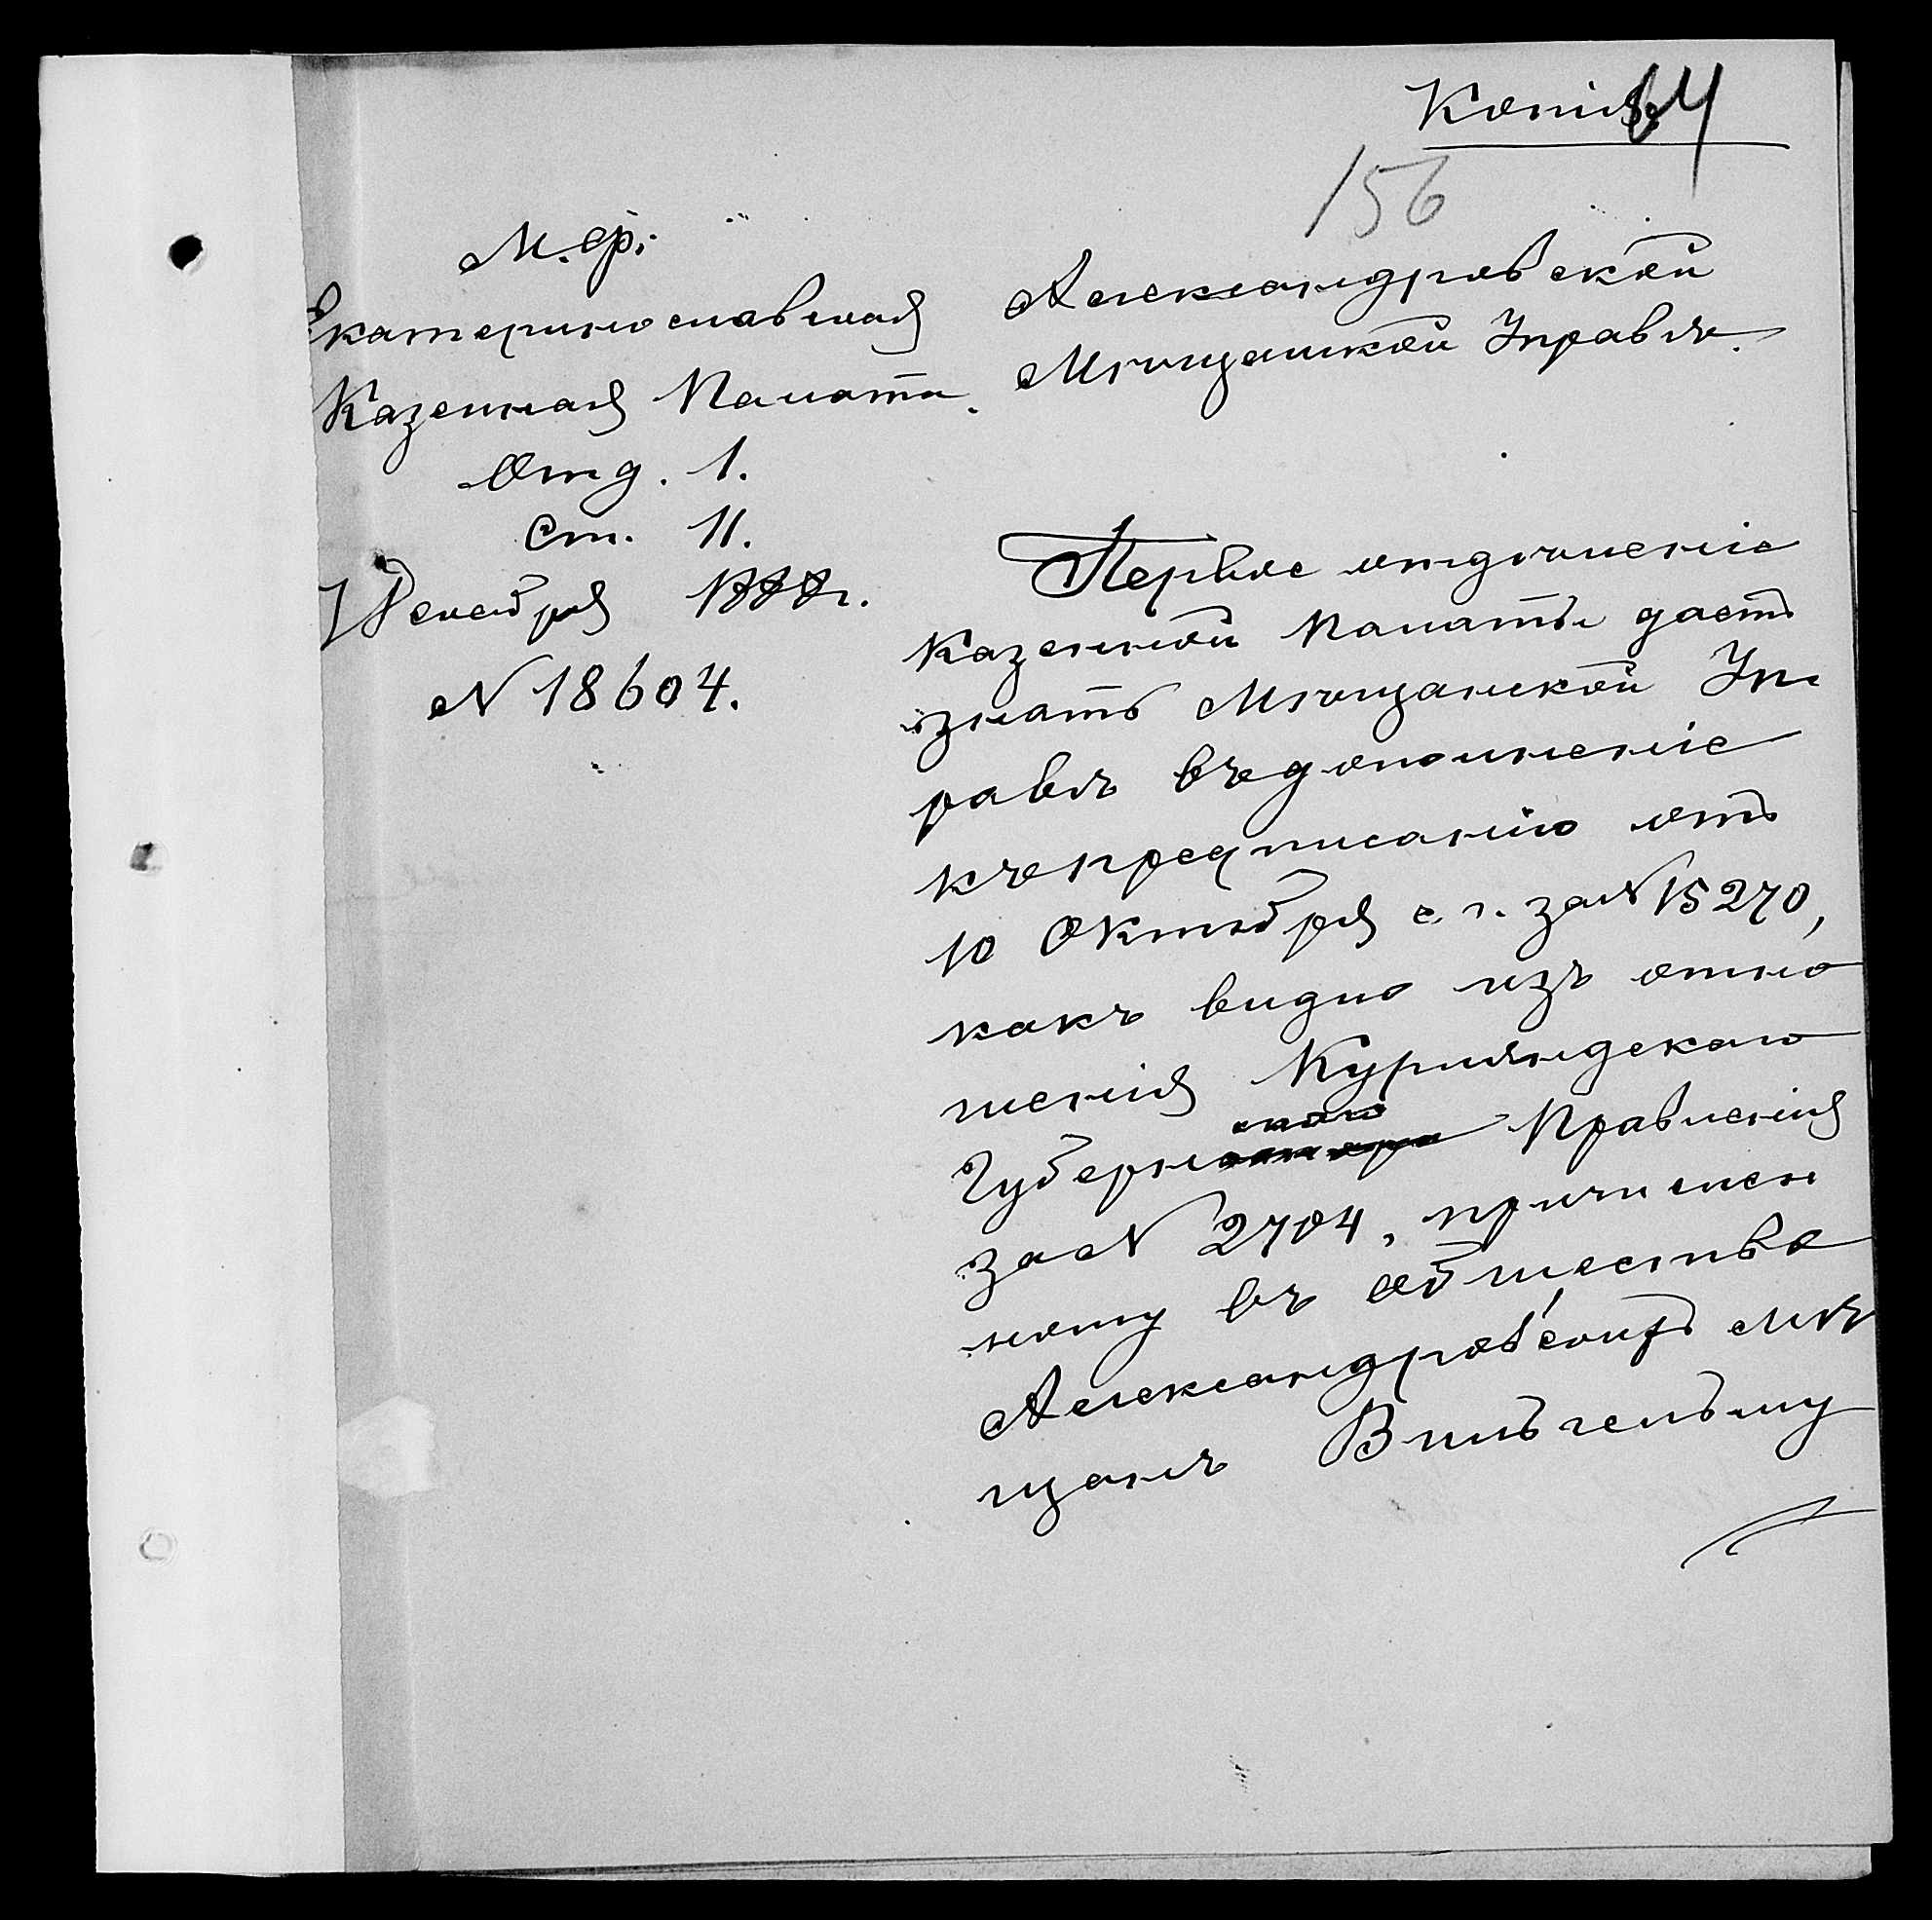 Копія
64
156
М. Ф.
Екатеринославская
Казенная Палата.
Отд. 1.
Ст. 11.
7 Декабря 1888 г.
N 18604.
Александровской
Мѣщанской Управѣ.
Первое отдѣленіе
Казенной Палаты даетъ
знать Мѣщанской Уп
равѣ въ дополненіе
къ предписанію отъ
10 Октября с. г. за N 15270,
какъ видно изъ отно
шенія Курляндскаго
Губернскаго Правленія
за N 2704, причислен
ному въ общество
Александровскихъ мѣ
щанъ Вильгельму